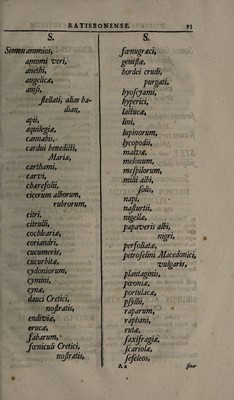 RATISBONENSE. 93
S.
Semen ammios,
amomi veri,
anethi,
angelicæ,
anisi,
stellati, aliàs ba-
dian,
apii,
aquilegiæ,
cannabis,
cardui benedicti,
Mariæ,
carthami,
carvi,
chærefolii,
cicerum alborum,
rubrorum,
citri,
citrulli,
cochleariæ,
coriandri,
cucumeris,
cucurbitæ,
cydoniorum,
cymini,
cynæ,
dauci Cretici,
nostratis,
endiviæ,
erucæ,
fabarum,
fœniculi Cretici,
nostratis,
S.
fœnugræci,
genistæ,
hordei crudi,
purgati,
hyoscyami,
hyperici,
lactucæ,
lini,
lupinorum,
lycopodii,
malvæ,
melonum,
mespilorum,
milii albi,
solis,
napi,
nasturtii,
nigellæ,
papaveris albi,
nigri,
perfoliatæ,
petroselini Macedonici,
vulgaris,
plantaginis,
pæoniæ,
portulacæ,
psyllii,
raparum,
raphani,
rutæ,
saxifragiæ,
scariolæ,
seseleos,